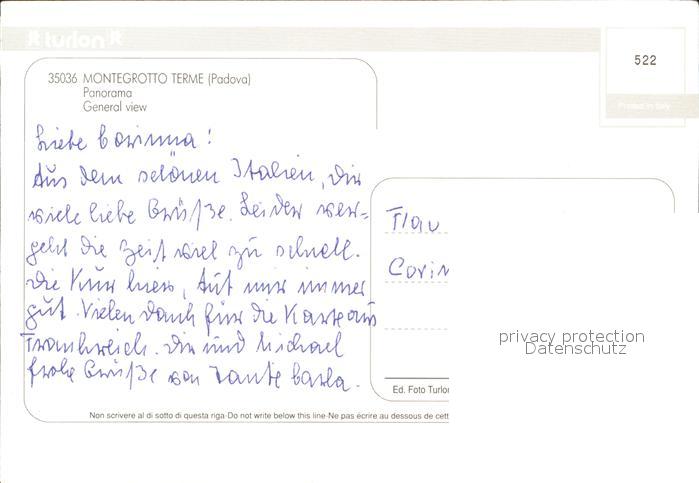 turlon
522
Printed in Italy
35036 MONTEGROTTO TERME (Padova)
Panorama
General view
Liebe Corinna!
Aus dem schönen Italien, Dir
viele liebe Grüße. Leider ver=
geht die Zeit viel zu schnell.
Die Kur hier, tut mir immer
gut. Vielen Dank für die Karte aus
Frankreich. Dir und Michael
frohe Grüße von Tante Carla.
Frau
Corin
privacy protection
Datenschutz
Ed. Foto Turlon
Non scrivere al di sotto di questa riga-Do not write below this line-Ne pas écrire au dessous de cett